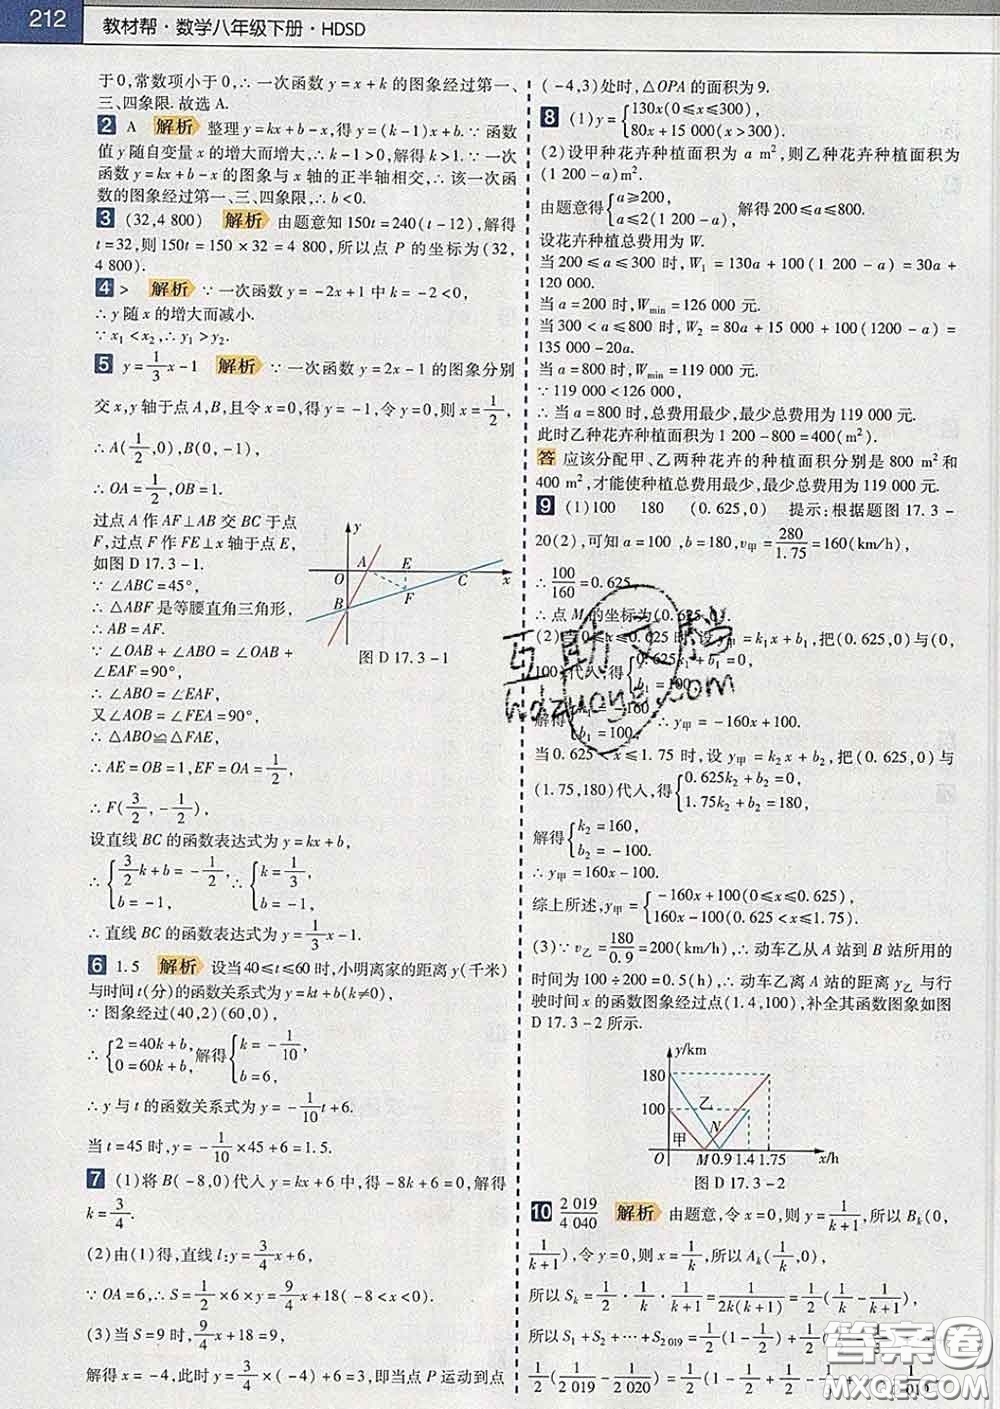 212 教材帮·数学八年级下册·HDSD
于0,常数项小于0,∴一次函数y=x+k的图象经过第一、
三、四象限.故选A.
2 A 解析 整理y=kx+b-x,得y=(k-1)x+b.∵函数
值y随自变量x的增大而增大,∴k-1>0,解得k>1.∵一次
函数y=kx+b-x的图象与x轴的正半轴相交,∴该一次函
数的图象经过第一、三、四象限,∴b<0.
3 (32,4 800) 解析 由题意知150t=240(t-12),解得
t=32,则150t=150×32=4 800,所以点P的坐标为(32,
4 800).
4 > 解析 ∵一次函数y=-2x+1中k=-2<0,
∴y随x的增大而减小.
∵x₁<x₂,∴y₁>y₂.
5 y=1/3x-1 解析 ∵一次函数y=2x-1的图象分别
交x,y轴于点A,B,且令x=0,得y=-1,令y=0,则x=1/2,
∴A(1/2,0),B(0,-1),
∴OA=1/2,OB=1.
过点A作AF⊥AB交BC于点
F,过点F作FE⊥x轴于点E,
如图D 17.3-1.
∵∠ABC=45°,
∴△ABF是等腰直角三角形,
∴AB=AF.
∵∠OAB+∠ABO=∠OAB+
∠EAF=90°,
∴∠ABO=∠EAF,
又∠AOB=∠FEA=90°,
∴△ABO≌△FAE,
∴AE=OB=1,EF=OA=1/2,
y
A E C
O x
F
B
图D 17.3-1
∴F(3/2,-1/2),
设直线BC的函数表达式为y=kx+b,
∴{3/2k+b=-1/2, b=-1, ∴{k=1/3, b=-1,
∴直线BC的函数表达式为y=1/3x-1.
6 1.5 解析 设当40≤t≤60时,小明离家的距离y(千米)
与时间t(分)的函数关系式为y=kt+b(k≠0),
∵图象经过(40,2)(60,0),
∴{2=40k+b, 0=60k+b, 解得{k=-1/10, b=6,
∴y与t的函数关系式为y=-1/10t+6.
当t=45时,y=-1/10×45+6=1.5.
7 (1)将B(-8,0)代入y=kx+6中,得-8k+6=0,解得
k=3/4.
(2)由(1)得,直线l:y=3/4x+6,
∵OA=6,∴S=1/2×6×y=9/4x+18(-8<x<0).
(3)当S=9时,9/4x+18=9,
解得x=-4,此时y=3/4×(-4)+6=3,即当点P运动到点
(-4,3)处时,△OPA的面积为9.
8 (1)y={130x(0≤x≤300), 80x+15 000(x>300).
(2)设甲种花卉种植面积为a m²,则乙种花卉种植面积为
(1 200-a)m².
由题意得{a≥200, a≤2(1 200-a), 解得200≤a≤800.
设花卉种植总费用为W.
当200≤a≤300时,W₁=130a+100(1 200-a)=30a+
120 000.
当a=200时,Wmin=126 000元.
当300<a≤800时,W₂=80a+15 000+100(1200-a)=
135 000-20a.
当a=800时,Wmin=119 000元.
∵119 000<126 000,
∴当a=800时,总费用最少,最少总费用为119 000元.
此时乙种花卉种植面积为1 200-800=400(m²).
答 应该分配甲、乙两种花卉的种植面积分别是800 m²和
400 m²,才能使种植总费用最少,最少总费用为119 000元.
9 (1)100 180 (0.625,0) 提示:根据题图17.3-
20(2),可知a=100,b=180,v甲=280/1.75=160(km/h),
∴100/160=0.625,
∴点M的坐标为(0.625,0).
(2)当0≤x≤0.625时,设y甲=k₁x+b₁,把(0.625,0)与(0,
100)代入,得{0.625k₁+b₁=0, b₁=100,
解得{k₁=-160, b₁=100, ∴y甲=-160x+100.
当0.625<x≤1.75时,设y甲=k₂x+b₂,把(0.625,0)与
(1.75,180)代入,得{0.625k₂+b₂=0, 1.75k₂+b₂=180,
解得{k₂=160, b₂=-100.
∴y甲=160x-100.
综上所述,y甲={-160x+100(0≤x≤0.625), 160x-100(0.625<x≤1.75).
(3)∵v乙=180/0.9=200(km/h),∴动车乙从A站到B站所用的
时间为100÷200=0.5(h),∴动车乙离A站的距离y乙与行
驶时间x的函数图象经过点(1.4,100),补全其函数图象如图
D 17.3-2所示.
y/km
180
100
乙
甲 N
O M 0.9 1.4 1.75 x/h
图D 17.3-2
10 2 019/4 040 解析 由题意,令x=0,则y=1/(k+1),所以Bk(0,
1/(k+1)),令y=0,则x=1/k,所以Ak(1/k,0),
所以Sk=1/2·1/k·1/(k+1)=1/(2k(k+1))=1/2(1/k-1/(k+1)),
所以S₁+S₂+⋯+S₂₀₁₉=1/2(1-1/2)+1/2(
1/2(1/2 019-1/2 020)=1/2(1-1/2+1/2-
互助文档
hdzuoye.com
答案圈
MXQE.COM